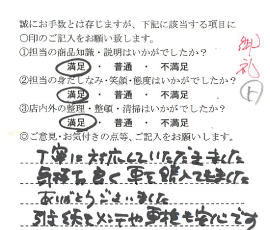 誠にお手数とは存じますが、下記に該当する項目に
○印のご記入をお願い致します。
①担当の商品知識・説明はいかがでしたか？
満足・普通・不満足
②担当の身だしなみ・笑顔・態度はいかがでしたか？
満足・普通・不満足
③店内外の整理・整頓・清掃はいかがでしたか？
満足・普通・不満足
◎ご意見・お気付きの点等、ご記入をお願いします。
丁寧に対応していただきました
気持ち良く車を購入できました
ありがとうございました
引き続きメンテや車検も安心です
御礼